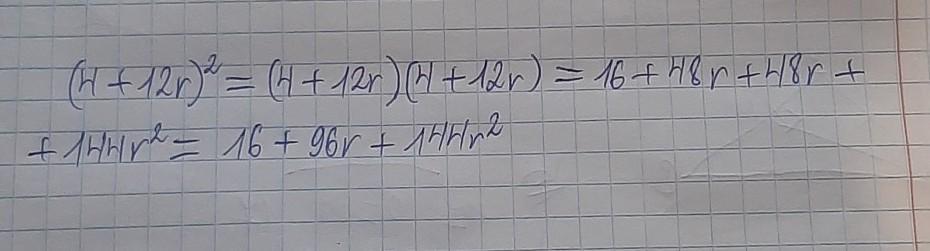 (4+12r)²=(4+12r)(4+12r)=16+48r+48r+
+144r²=16+96r+144r²